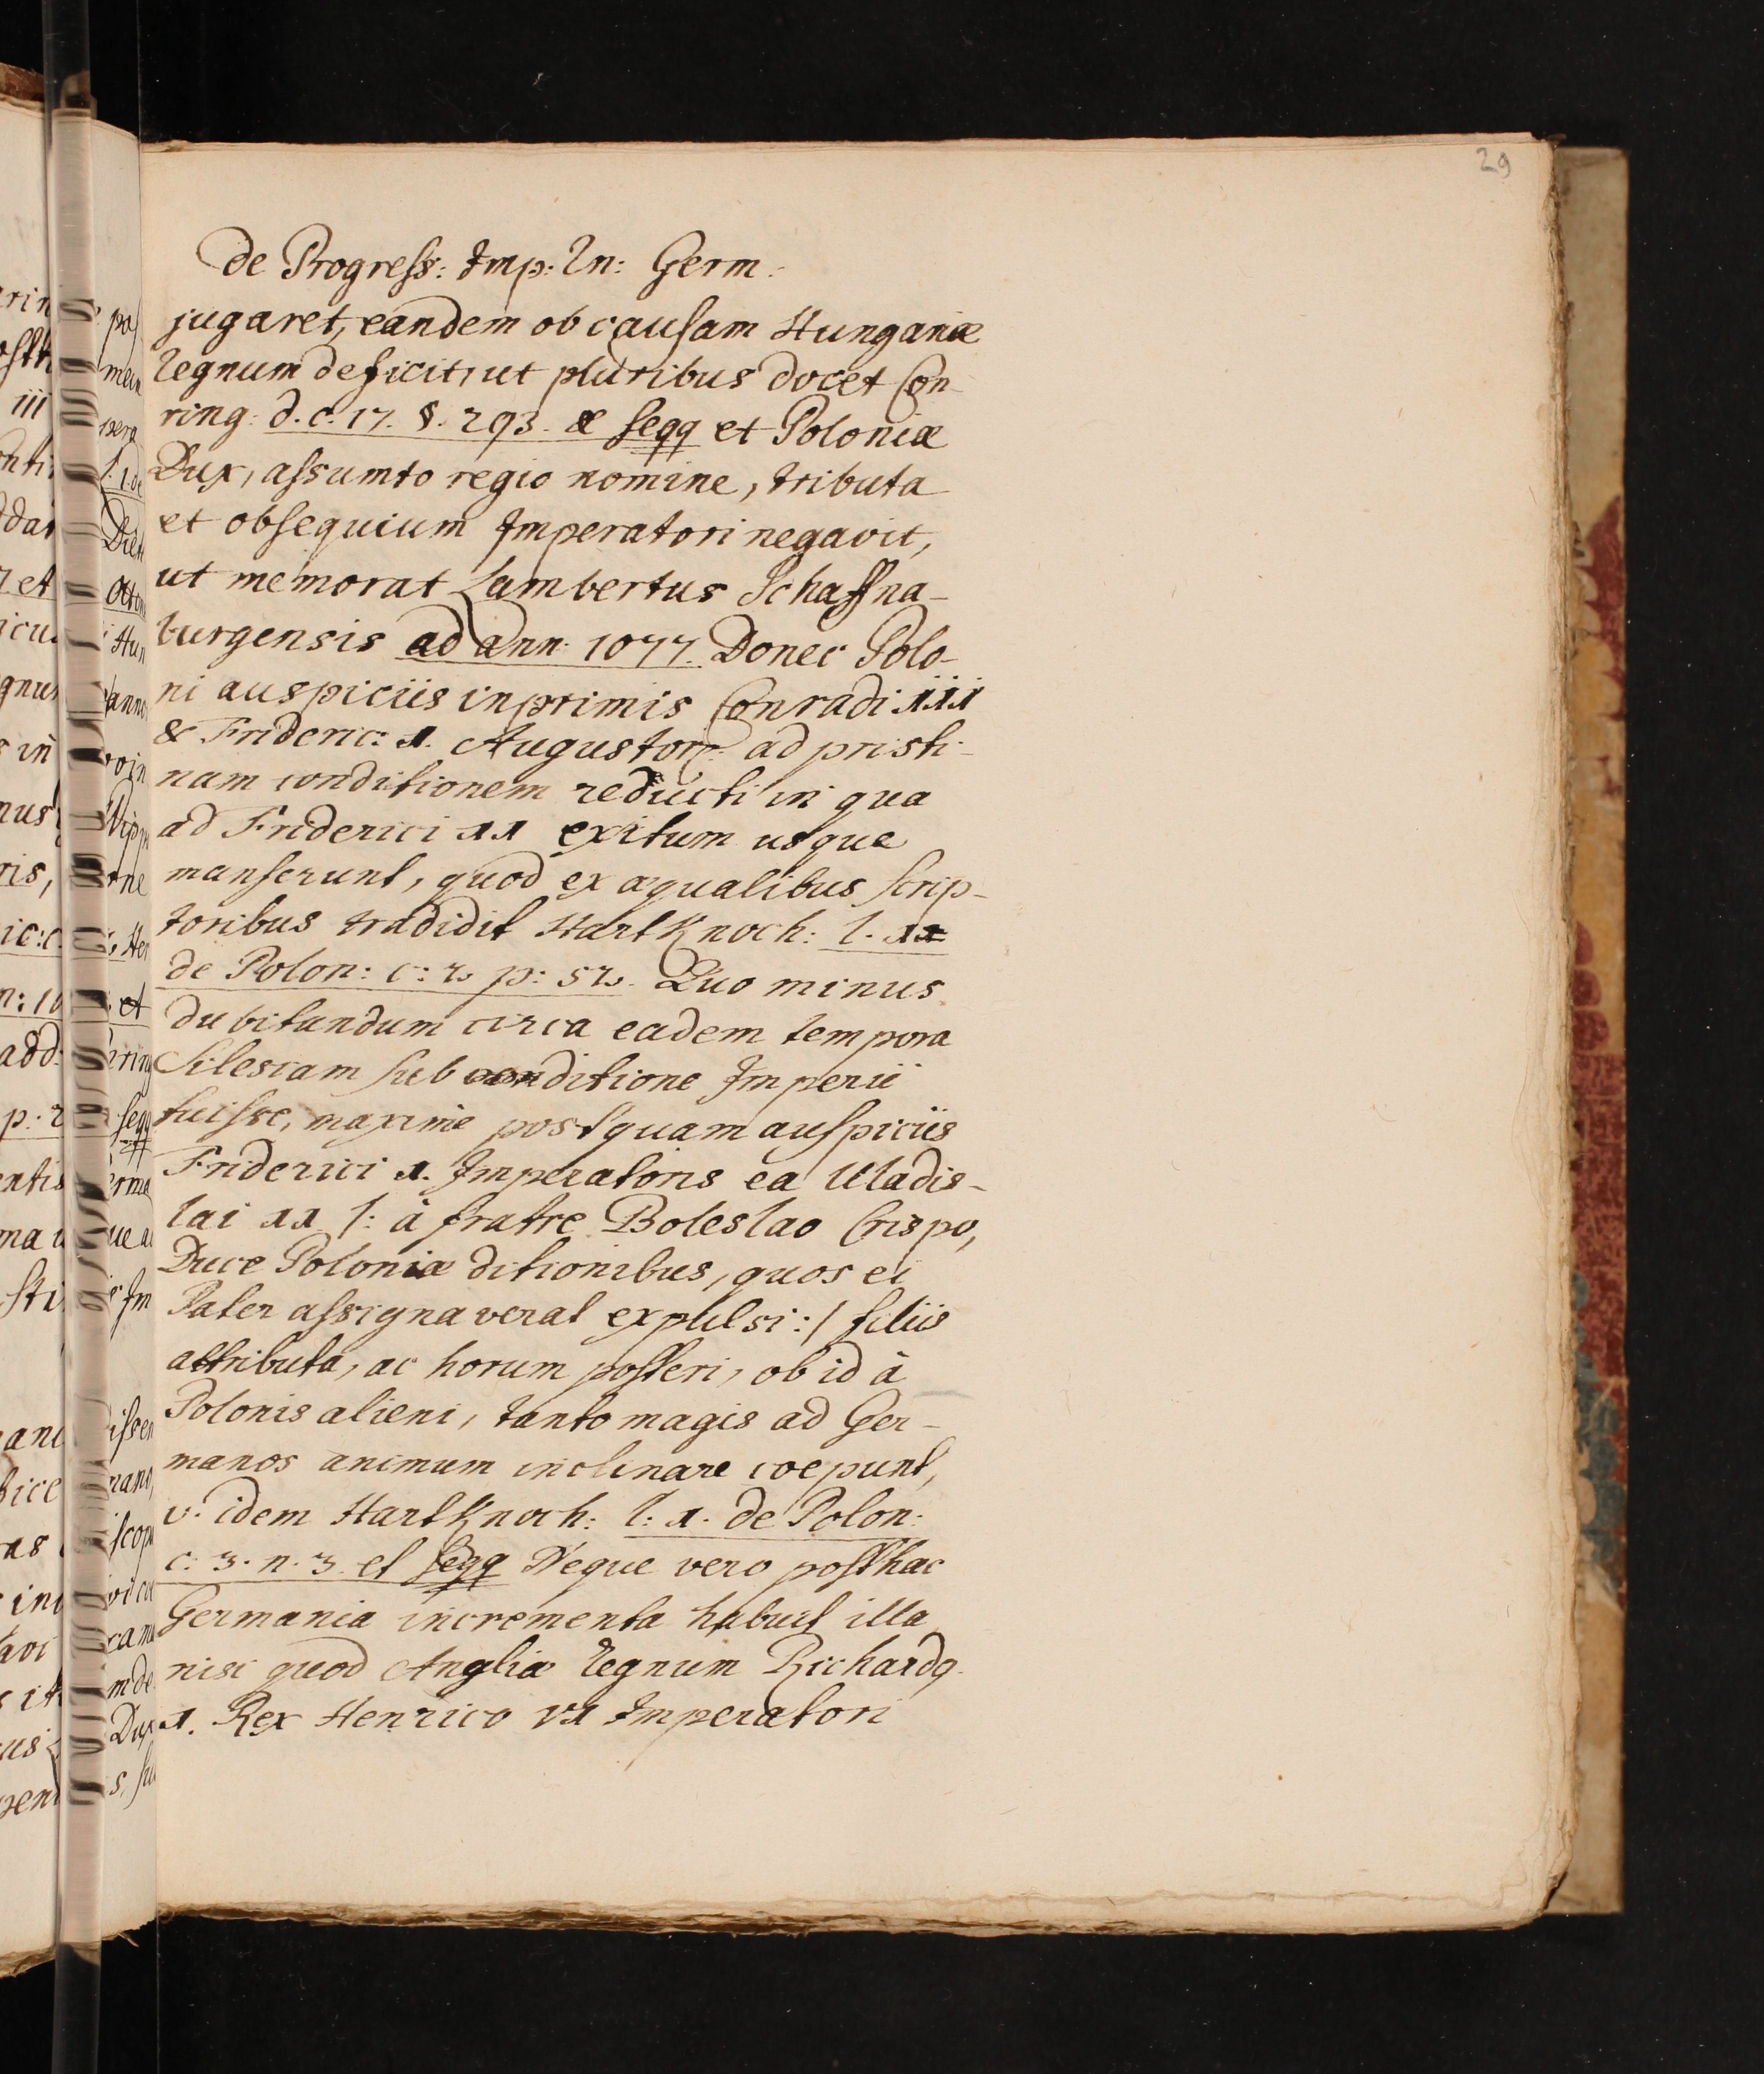 29
de Progress: Imp: In: Germ.
jugaret, eandem ob causam Hungariæ
regnum deficit, ut pluribus docet Con-
ring: d. c. 17. §. 293. & seqq et Poloniæ
Dux, assumto regio nomine, tributa
et obsequium Imperatori negavit,
ut memorat Lambertus Schaffna-
burgensis ad ann: 1077. Donec Polo-
ni auspiciis inprimis Conradi III
& Frideric: I. Augustor: ad pristi-
nam conditionem reducti in qua
ad Friderici II exitum usque
manserunt, quod ex æqualibus scrip-
toribus tradidit Hartknoch: l. II
de Polon: c: 2 p: 52. Quo minus
dubitandum circa eadem tempora
Silesiam sub conditione Imperii
fuisse, maxime postquam auspiciis
Friderici I. Imperatoris ea Uladis-
lai II /: à fratre Boleslao Crispo,
Duce Poloniæ ditionibus, quos ei
Pater assignaverat expulsi :/ filiis
attributa, ac horum posteri, ob id à
Polonis alieni, tanto magis ad Ger-
manos animum inclinare coepunt,
v. idem Hartknoch: l: I. de Polon:
c: 3. n. 3. et seqq Neque vero posthac
Germania incrementa habuit illa
nisi quod Angliæ regnum Richardq
I. Rex Henrico VI Imperatori